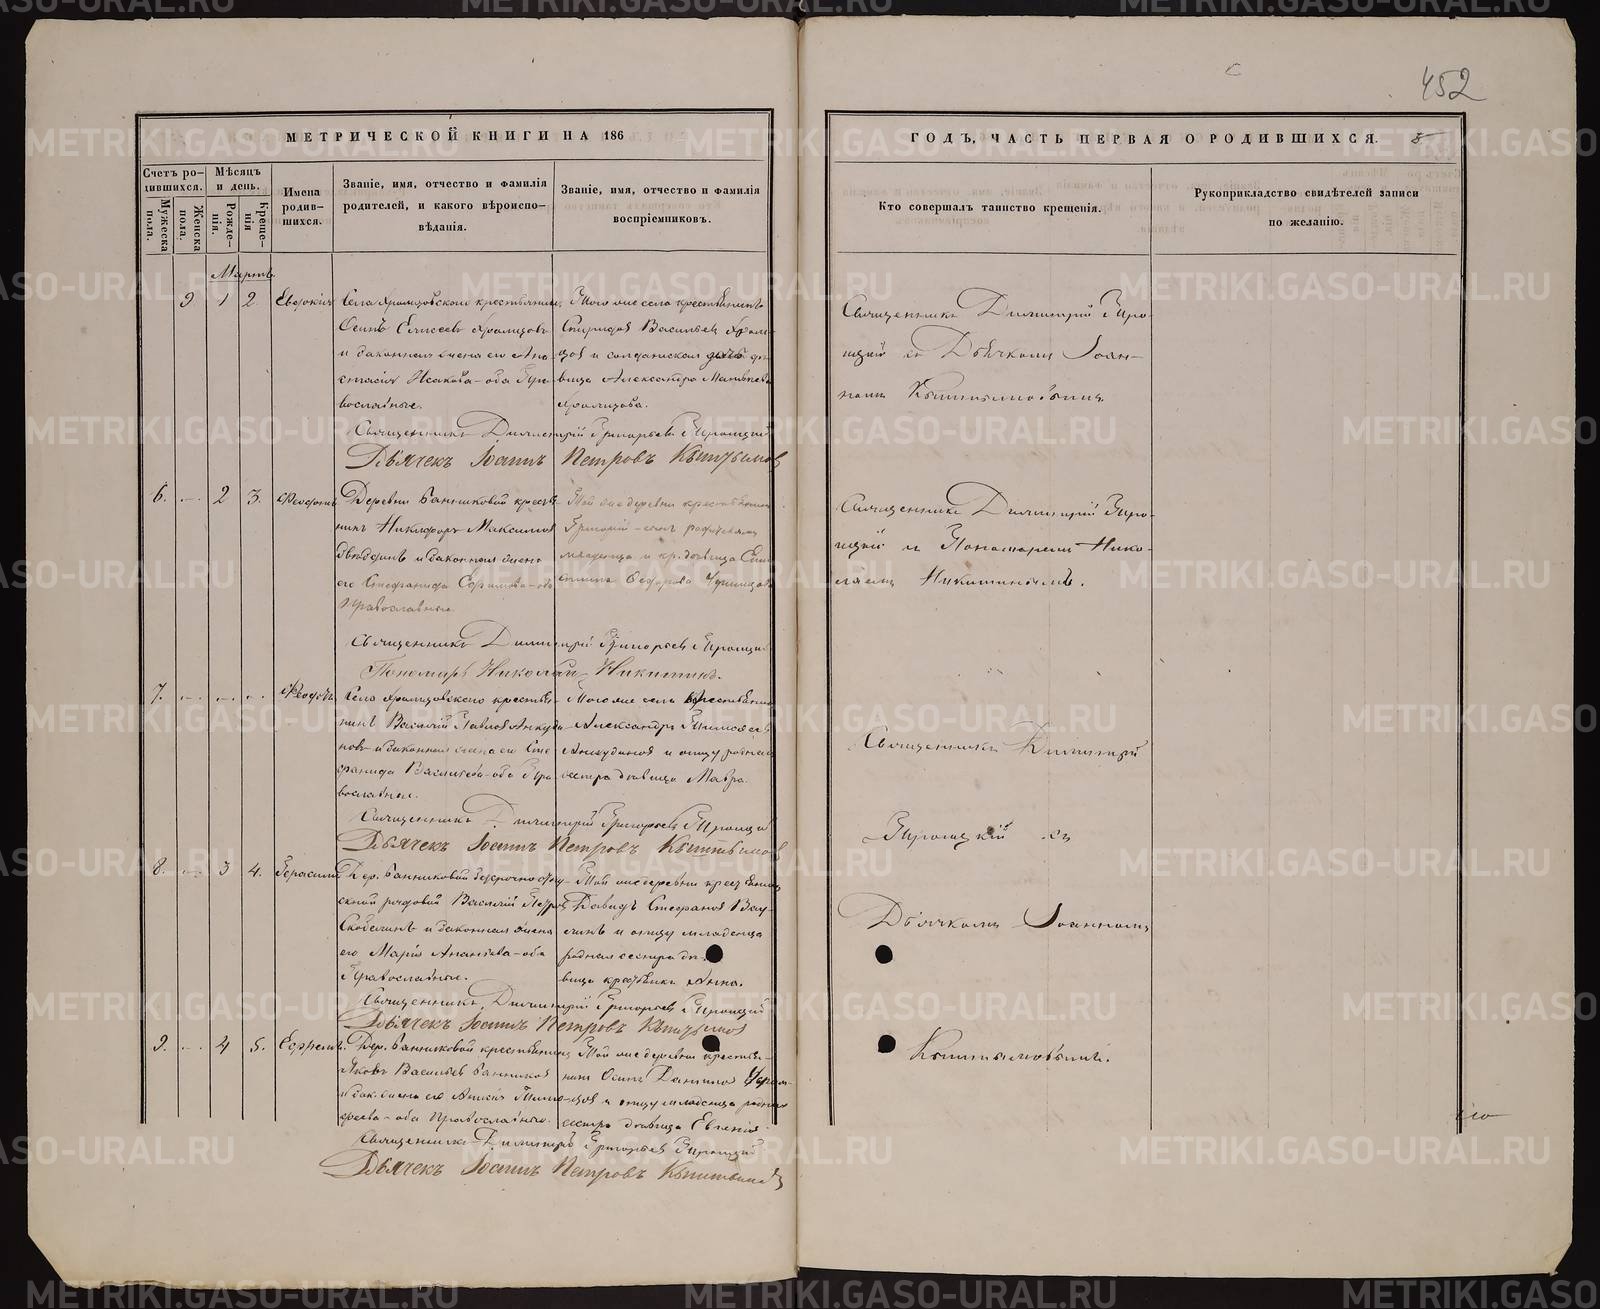 452
МЕТРИЧЕСКОЙ КНИГИ НА 186
ГОДЪ, ЧАСТЬ ПЕРВАЯ О РОДИВШИХСЯ.
Счетъ ро-
дившихся.
Мѣсяцъ
и день.
Мужеска
пола.
Женска
пола.
Рожде-
нія.
Креще-
нія
Имена
родив-
шихся.
Званіе, имя, отчество и фамилія
родителей, и какого вѣроиспо-
вѣданія.
Званіе, имя, отчество и фамилія
воспріемниковъ.
Кто совершалъ таинство крещенія.
Рукоприкладство свидѣтелей записи
по желанію.
Мартъ
9 1 2 Евдокія
Села Храмцовскаго крестьянинъ
Осипъ Елисеевъ Храмцовъ
и законная жена его Ана-
стасія Исакова - оба Пра-
вославные.
Того же села крестьянинъ
Спиридонъ Васильевъ Храм-
цовъ и солдатская дочь дѣ-
вица Александра Матвѣева
Храмцова.
Священникъ Димитрій Троиц-
кій съ Дьячкомъ Іоан-
номъ Кыштымовымъ.
Священникъ Димитрій Григорьевъ Троицкій
Дьячекъ Іоаннъ Петровъ Кыштымовъ
6. 2 3.
Деревни Банниковой кресть-
нинъ Никифоръ Максимовъ
и законная жена
его Стефанида Ефимова - оба
Православные.
Той же деревни крестьянинъ
Григорій
младенца и кр. дѣвица
Федорова
Священникъ Димитрій Трои-
цкій и Пономаремъ Нико-
лаемъ Никитинымъ.
Священникъ Димитрій Григорьевъ Троицкій
Пономарь Николай Никитинъ.
7. Ѳеодотъ
Села Храмцовскаго крестья-
нинъ Василій Павловъ Анкуди-
новъ и законная жена его Сте-
фанида Васильева - оба Пра-
вославные.
Того же села крестьянинъ
Александръ Тимофеевъ
Анкудиновъ и отцу родная
сестра дѣвица Мавра.
Священникъ Димитрій
Троицкій съ
Дьячкомъ Іоанномъ
Кыштымовымъ.
Священникъ Димитрій Григорьевъ Троицкій
Дьячекъ Іоаннъ Петровъ Кыштымовъ
8. 3 4. Герасимъ
Дер. Банниковой безсрочноотпу-
скной рядовой Василій Петровъ
и законная жена
его Марія Ананьева - оба
Православные.
Той же деревни крест.
Давидъ Стефановъ
и отцу младенца
родная сестра дѣ-
вица Анна.
Священникъ Димитрій Григорьевъ Троицкій
Дьячекъ Іоаннъ Петровъ Кыштымовъ
9. 4 5. Ефремъ.
Дер. Банниковой крестьянинъ
Яковъ Васильевъ Банниковъ
и зак. жена его Тимо-
феева - оба Православные.
Той же деревни крестья-
нинъ Осипъ Даниловъ
и отцу младенца родная
сестра дѣвица Евгенія.
Священникъ Димитрій Григорьевъ Троицкій
Дьячекъ Іоаннъ Петровъ Кыштымовъ
METRIKI.GASO-URAL.RU